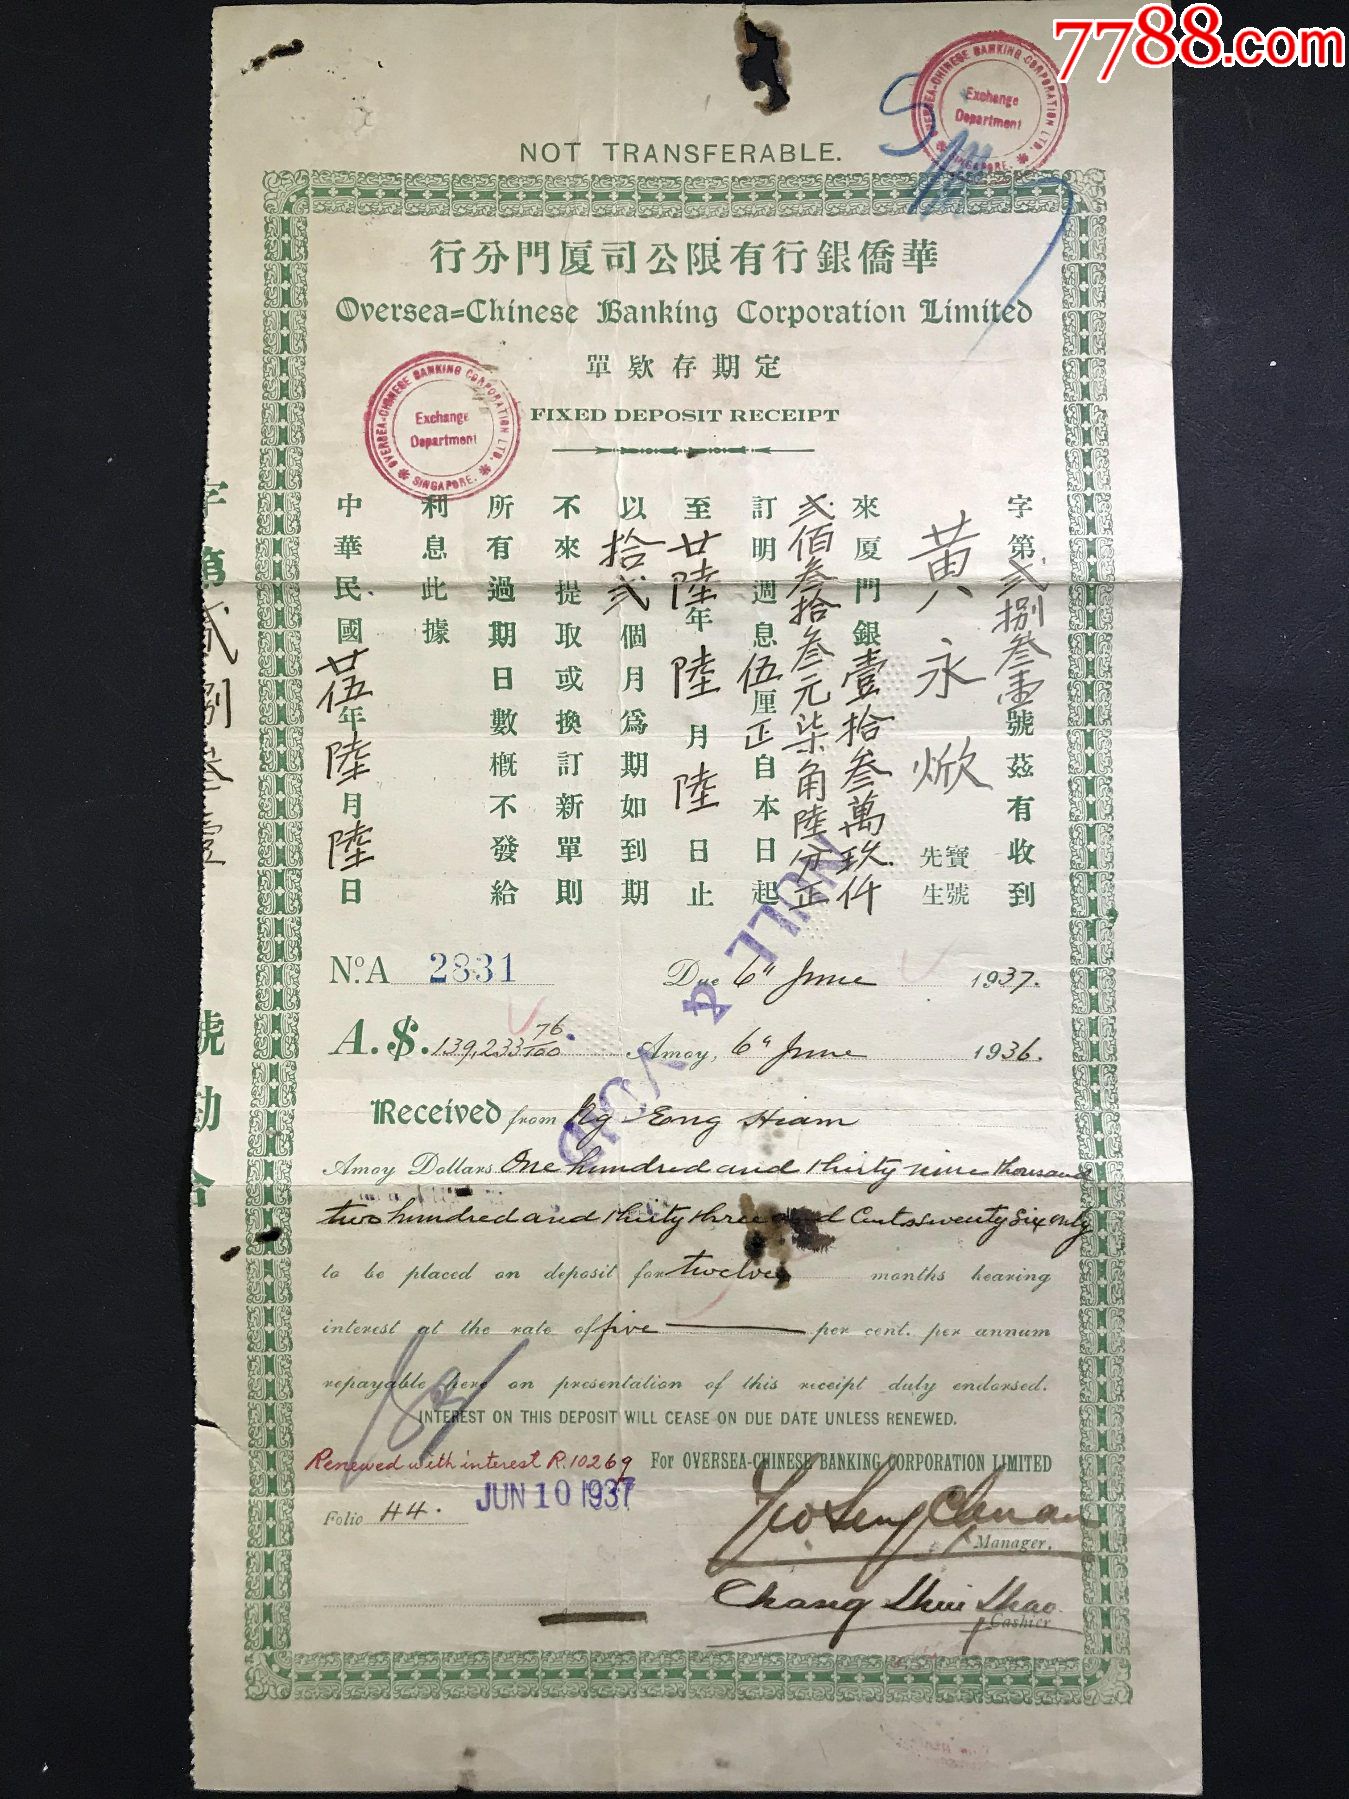 7788.com
OVERSEA-CHINESE BANKING CORPORATION LTD.
Exchange
Department
SINGAPORE.
NOT TRANSFERABLE.
華僑銀行有限公司厦門分行
Oversea=Chinese Banking Corporation Limited
定期存欵單
OVERSEA-CHINESE BANKING CORPORATION LTD.
Exchange
Department
SINGAPORE.
FIXED DEPOSIT RECEIPT
字第弍捌叁壹號茲有收到
黄永焮
寶號
先生
來厦門銀壹拾叁萬玖仟
弍佰叁拾叁元柒角陸分正
訂明週息伍厘正自本日起
至廿陸年陸月陸日止
以拾弍個月爲期如到期
不來提取或換訂新單則
所有過期日數概不發給
利息此據
中華民國廿伍年陸月陸日
字第弍捌叁壹號
No. A 2831
Due 6th June 1937.
A. $. 139,233 76/100.
Amoy, 6th June 1936.
NULL & VOID
Received from Ng Eng Hiam
Amoy Dollars One hundred and thirty nine thousand
two hundred and thirty three and Cents seventy six only
to be placed on deposit for twelve months bearing
interest at the rate of five per cent. per annum
repayable here on presentation of this receipt duly endorsed.
INTEREST ON THIS DEPOSIT WILL CEASE ON DUE DATE UNLESS RENEWED.
Renewed with interest R.10269
For OVERSEA-CHINESE BANKING CORPORATION LIMITED
JUN 10 1937
Folio 44.
Yeo Seng Chuan
Manager.
Chang Shui Shao
Cashier